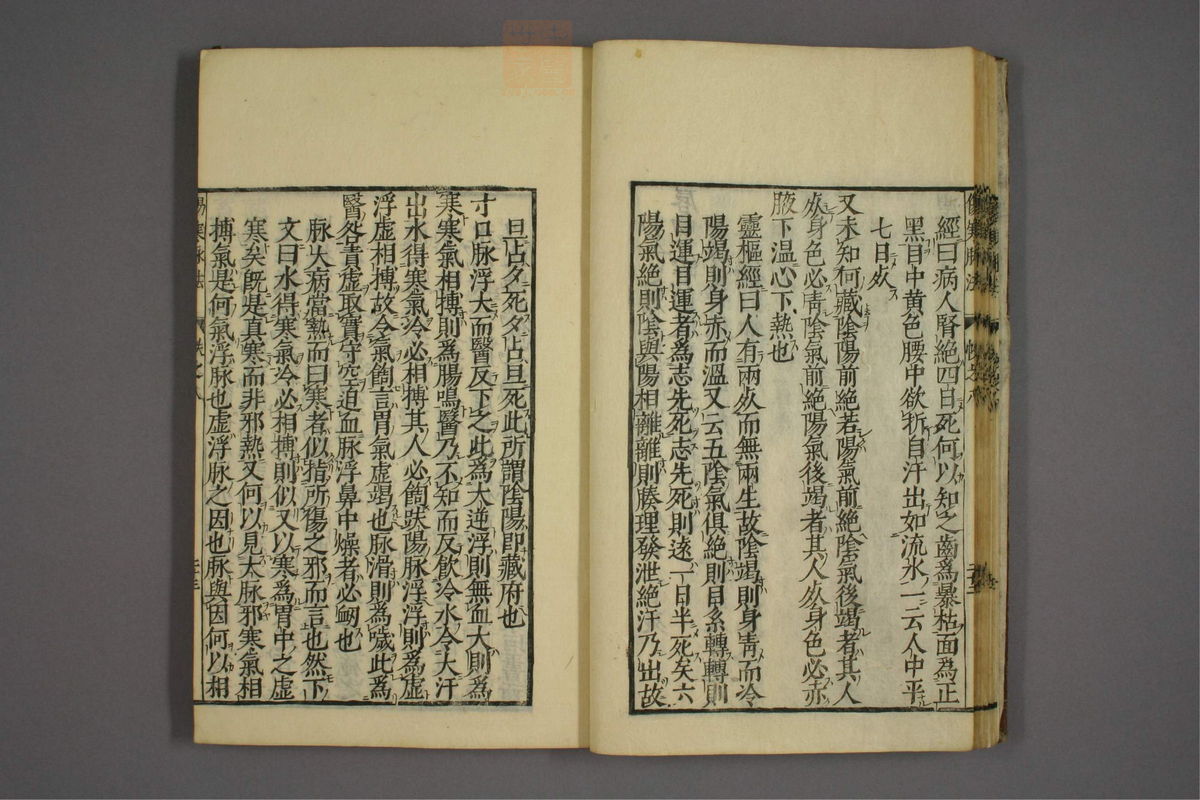 經曰病人腎絕四日死何以知之齒爲暴枯面為正
黑目中黄色腰中欲折自汗出如流水一云人中平
七日死
又未知何藏陰陽前絕若陽氣前絕陰氣後竭者其人
死身色必靑陰氣前絕陽氣後竭者其人死身色必赤
腋下温心下熱也
靈樞經曰人有兩死而無兩生故陰竭則身靑而冷
陽竭則身赤而温又云五陰氣俱絕則目系轉轉則
目運目運者為志先死志先死則遠一日半死矣六
陽氣絕則陰與陽相離離則腠理發泄絕汗乃出故
旦占夕死夕占旦死此所謂陰陽即藏府也
寸口脉浮大而醫反下之此爲大逆浮則無血大則爲
寒寒氣相搏則爲腸鳴醫乃不知而反飲冷水令大汗
出水得寒氣冷必相搏其人必䭇趺陽脉浮浮則爲虛
浮虛相搏故令氣䭇言胃氣虛竭也脉滑則爲噦此爲
醫咎責虛取實守空迫血脉浮鼻中燥者必衂也
脉大病當熱而曰寒者似指所傷之邪而言也然下
文曰水得寒氣冷必相搏則似又以寒爲胃中之虛
寒矣旣是真寒而非邪熱又何以見大脉邪寒氣相
搏氣是何氣浮脉也虛浮脉之因也脉與因何以相